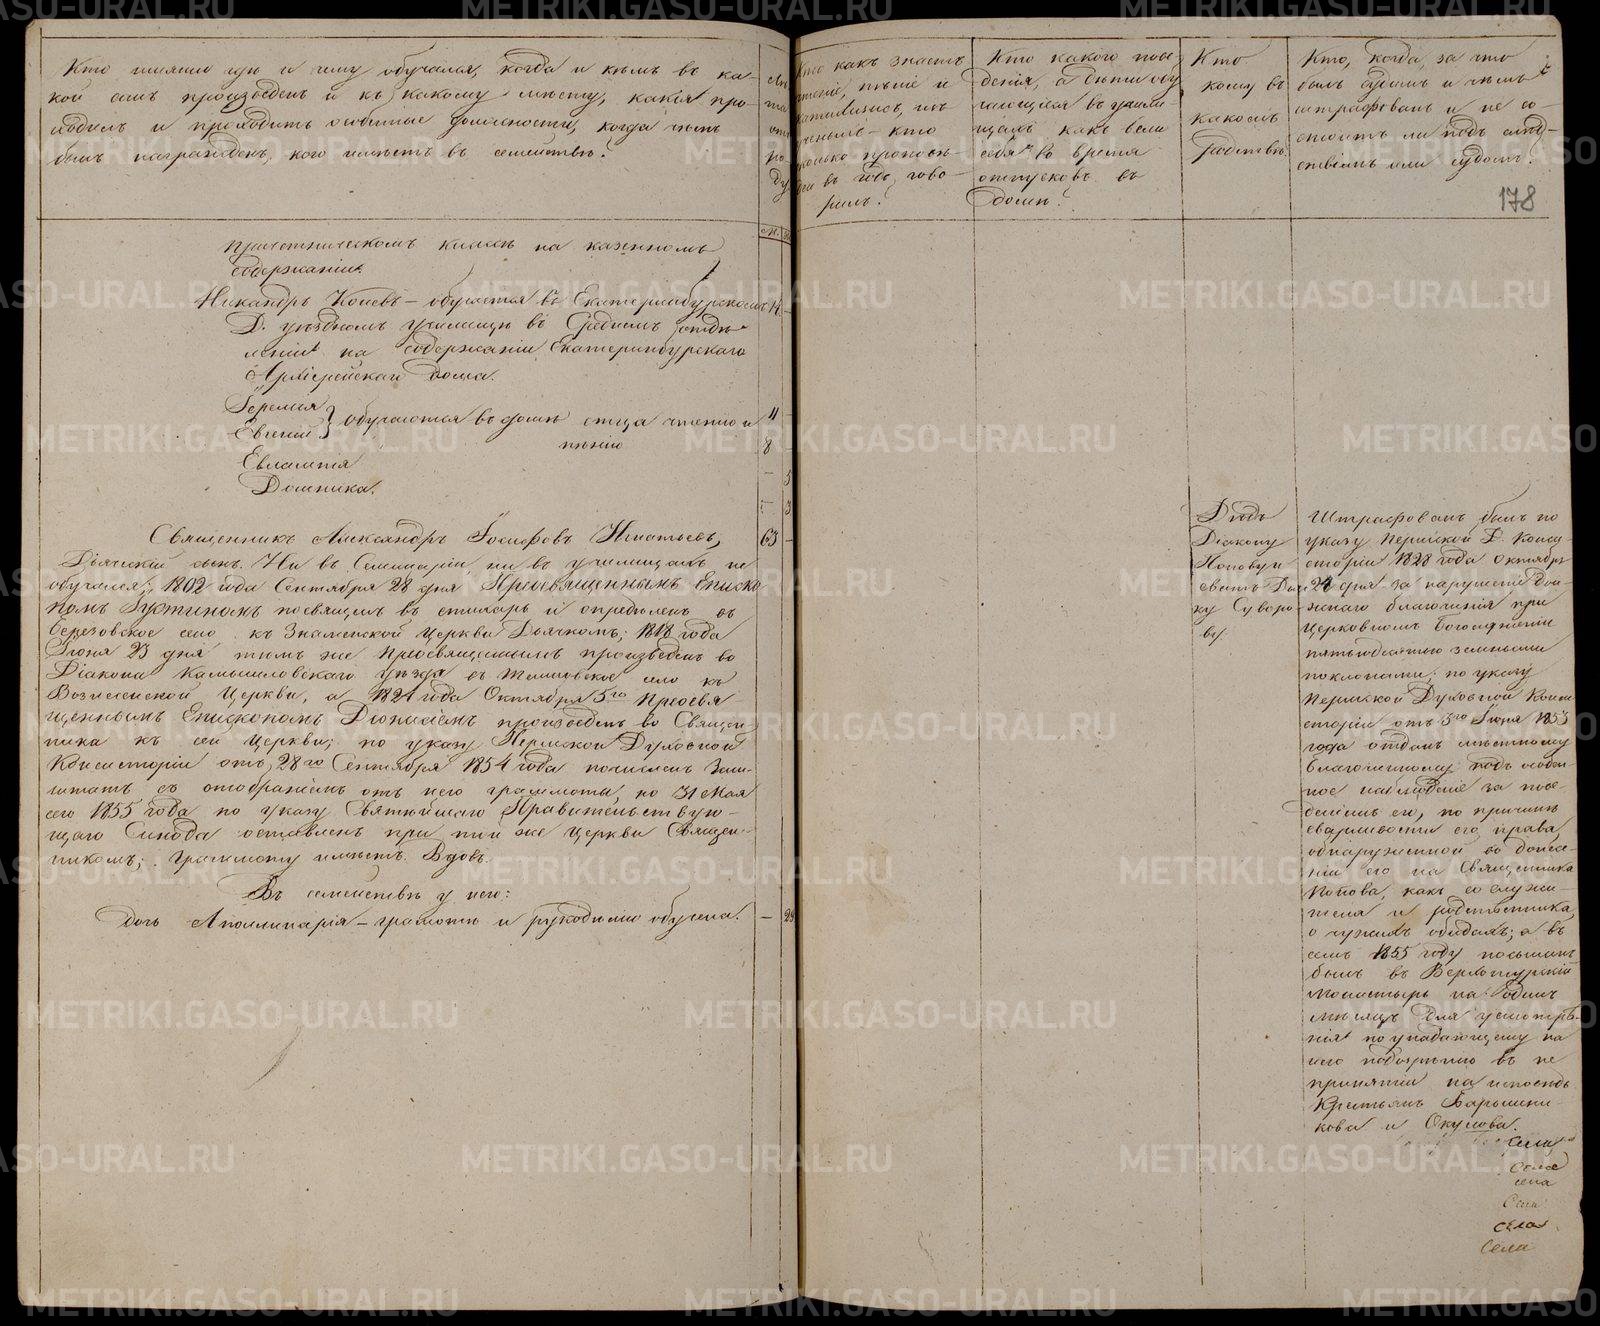 Кто имянно гдѣ и чему обучался, когда и кѣмъ въ ка-
кой санъ произведенъ и къ какому мѣсту, какія про-
ходилъ и проходитъ особенныя должности, когда чѣмъ
былъ награжденъ, кого имѣетъ въ семействѣ?
Лѣ
та
отъ
ро
ду
м.
Кто какъ знаетъ
чтеніе, пѣніе и
катихизисъ, изъ
ученыхъ – кто
сколько проповѣ-
дей въ годъ гово-
рилъ?
Кто какого пове
денія, а дѣти обу
чающіяся въ учили
щахъ какъ вели
себя во время
отпусковъ въ
домы?
Кто
кому въ
какомъ
родствѣ.
Кто, когда, за что
былъ судимъ и чѣмъ
штрафованъ и не со-
стоитъ ли подъ слѣд-
ствіемъ или судомъ?
178
причетническомъ классѣ на казенномъ
содержаніи.
Никандръ – обучается въ Екатеринбургскомъ 14 –
Д. уѣздномъ училищѣ въ Среднемъ отдѣ-
леніи на содержаніи Екатеринбурскаго
Архіерейскаго дома.
Іеремія 11 –
Евгеній } обучаются въ домѣ отца чтенію и 8 –
пѣнію
Евлампія – 5
Домника. – 3
Священникъ Александръ Іосифовъ Игнатьевъ, 63 –
Дьячскій сынъ. Ни въ Семинаріи ни въ училищахъ не
обучался; 1802 года Сентября 28 дня Преосвященнымъ Еписко
помъ Іустиномъ посвященъ въ стихарь и опредѣленъ въ
Березовское село къ Знаменской Церкви Дьячкомъ; 1818 года
Іюня 23 дня тѣмъ же Преосвященнымъ произведенъ во
Діакона Камышловскаго уѣзда въ село къ
Вознесенской Церкви, а 1821 года Октября 5го Преосвя
щеннымъ Епископомъ Діонисіемъ произведенъ во Священ
ника къ сей Церкви; по указу Пермской Духовной
Консисторіи отъ 28го Сентября 1854 года почисленъ Заш-
татъ съ отобраніемъ отъ него граммоты, но 31 Мая
сего 1855 года по указу Святѣйшаго Правительствую-
щаго Синода оставленъ при той же Церкви Священ-
никомъ; Граммоту имѣетъ. Вдовъ.
Въ семействѣ у него:
дочь Аполлинарія – грамотѣ и рукодѣлію обучена. – 29
Дядь
Діакону
Попову и
сватъ Дья
ку Суворо
ву.
Штрафованъ былъ по
указу Пермской Д. Конси
сторіи 1828 года Октября
28 дня за нарушеніе дол-
жнаго благочинія при
Церковномъ богослуженіи
пятьюдесятью земными
поклонами; по указу
Пермской Духовной Конси
сторіи отъ 3го Іюня 1853
года отданъ мѣстному
Благочинному подъ особен-
ное наблюдѣніе за пове-
деніемъ его, по причинѣ
сварливости его нрава,
обнаруженной во донесе-
ніи его на Священника
Попова, какъ со служи-
теля и родственника,
о чужихъ обидахъ; а въ
семъ 1855 году посыланъ
былъ въ Верхотурскій
Монастырь на одинъ
мѣсяцъ для усмотрѣ-
нія по упадающему на
него подозрѣнію въ не
принятіи на исповѣдь
Крестьянъ Барышни-
кова и Окулова.
Села
Села
села
Села
Села
Села
METRIKI.GASO-URAL.RU